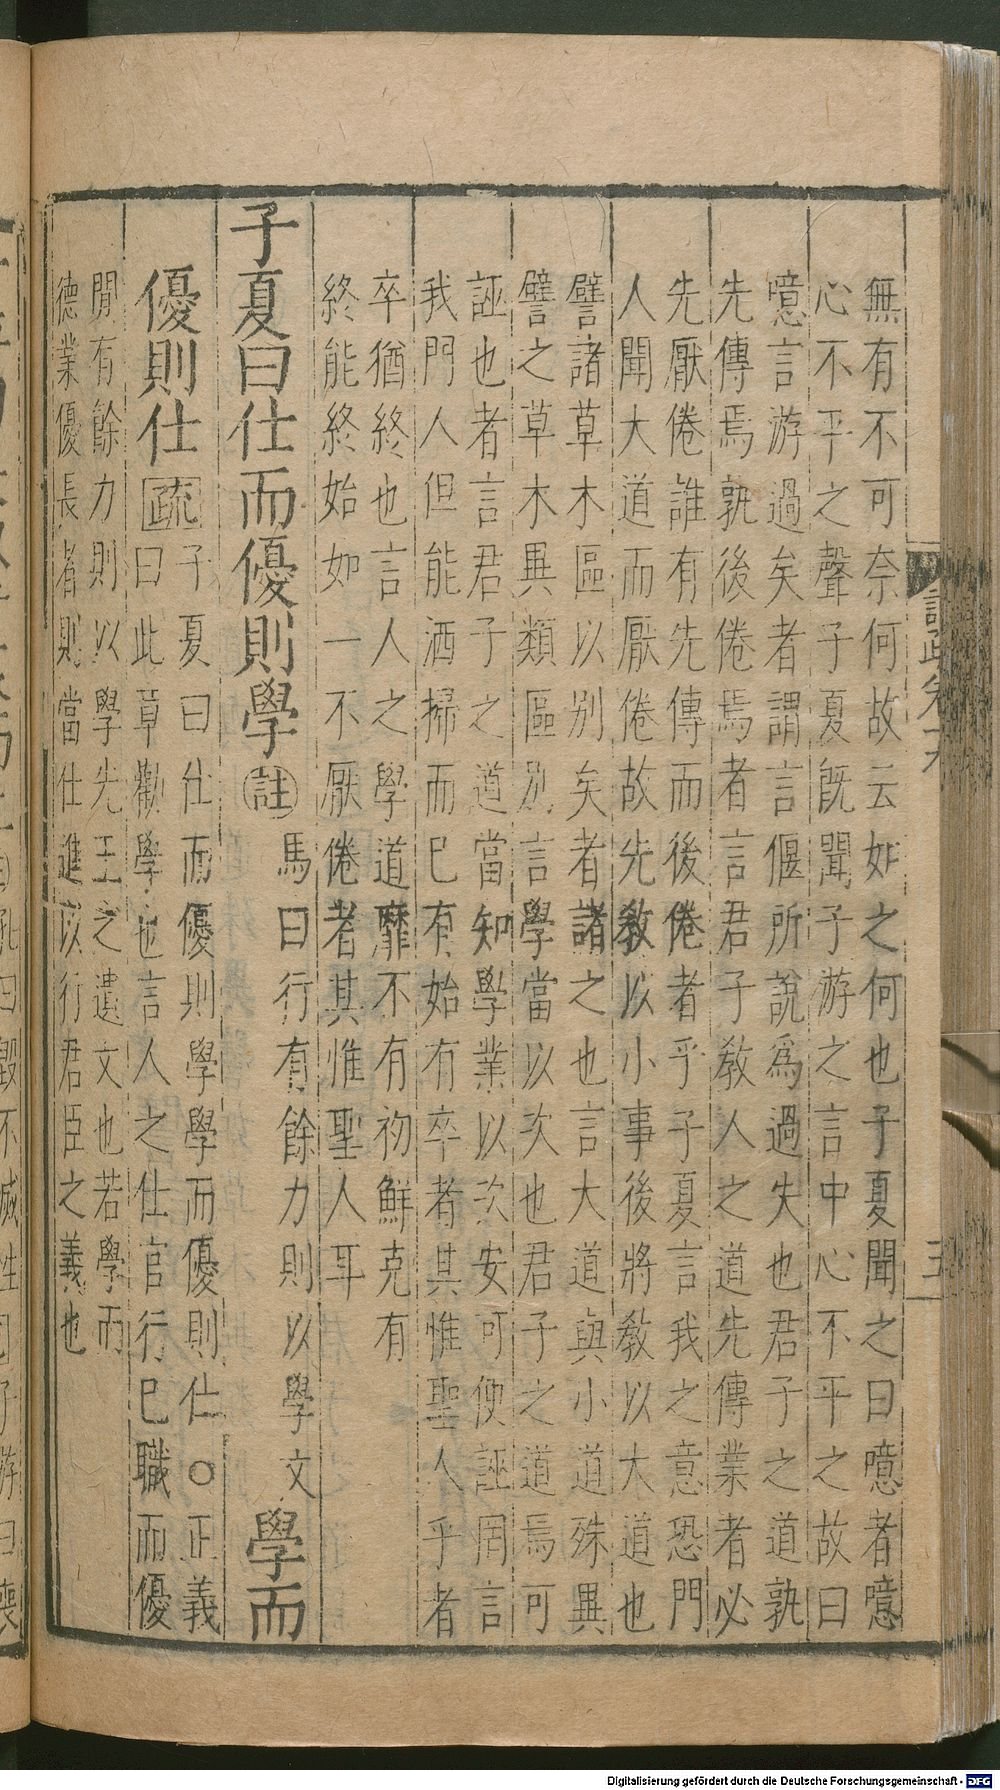 無有不可奈何故云如之何也子夏聞之曰噫者噫
心不平之聲子夏旣聞子游之言中心不平之故曰
噫言游過矣者謂言偃所說爲過失也君子之道孰
先傳焉孰後倦焉者言君子敎人之道先傳業者必
先厭倦誰有先傳而後倦者乎子夏言我之意恐門
人聞大道而厭倦故先敎以小事後將敎以大道也
譬諸草木區以別矣者諸之也言大道與小道殊異
譬之草木異類區別言學當以次也君子之道焉可
誣也者言君子之道當知學業以次安可便誣罔言
我門人但能洒掃而巳有始有卒者其惟聖人乎者
卒猶終也言人之學道靡不有初鮮克有
終能終始如一不厭倦者其惟聖人耳
子夏曰仕而優則學
註
馬曰行有餘力則以學文
學而
優則仕
疏
子夏曰仕而優則學學而優則仕○正義
曰此章勸學也言人之仕官行巳職而優
閒有餘力則以學先王之遺文也若學而
德業優長者則當仕進以行君臣之義也
Digitalisierung gefördert durch die Deutsche Forschungsgemeinschaft - DFG